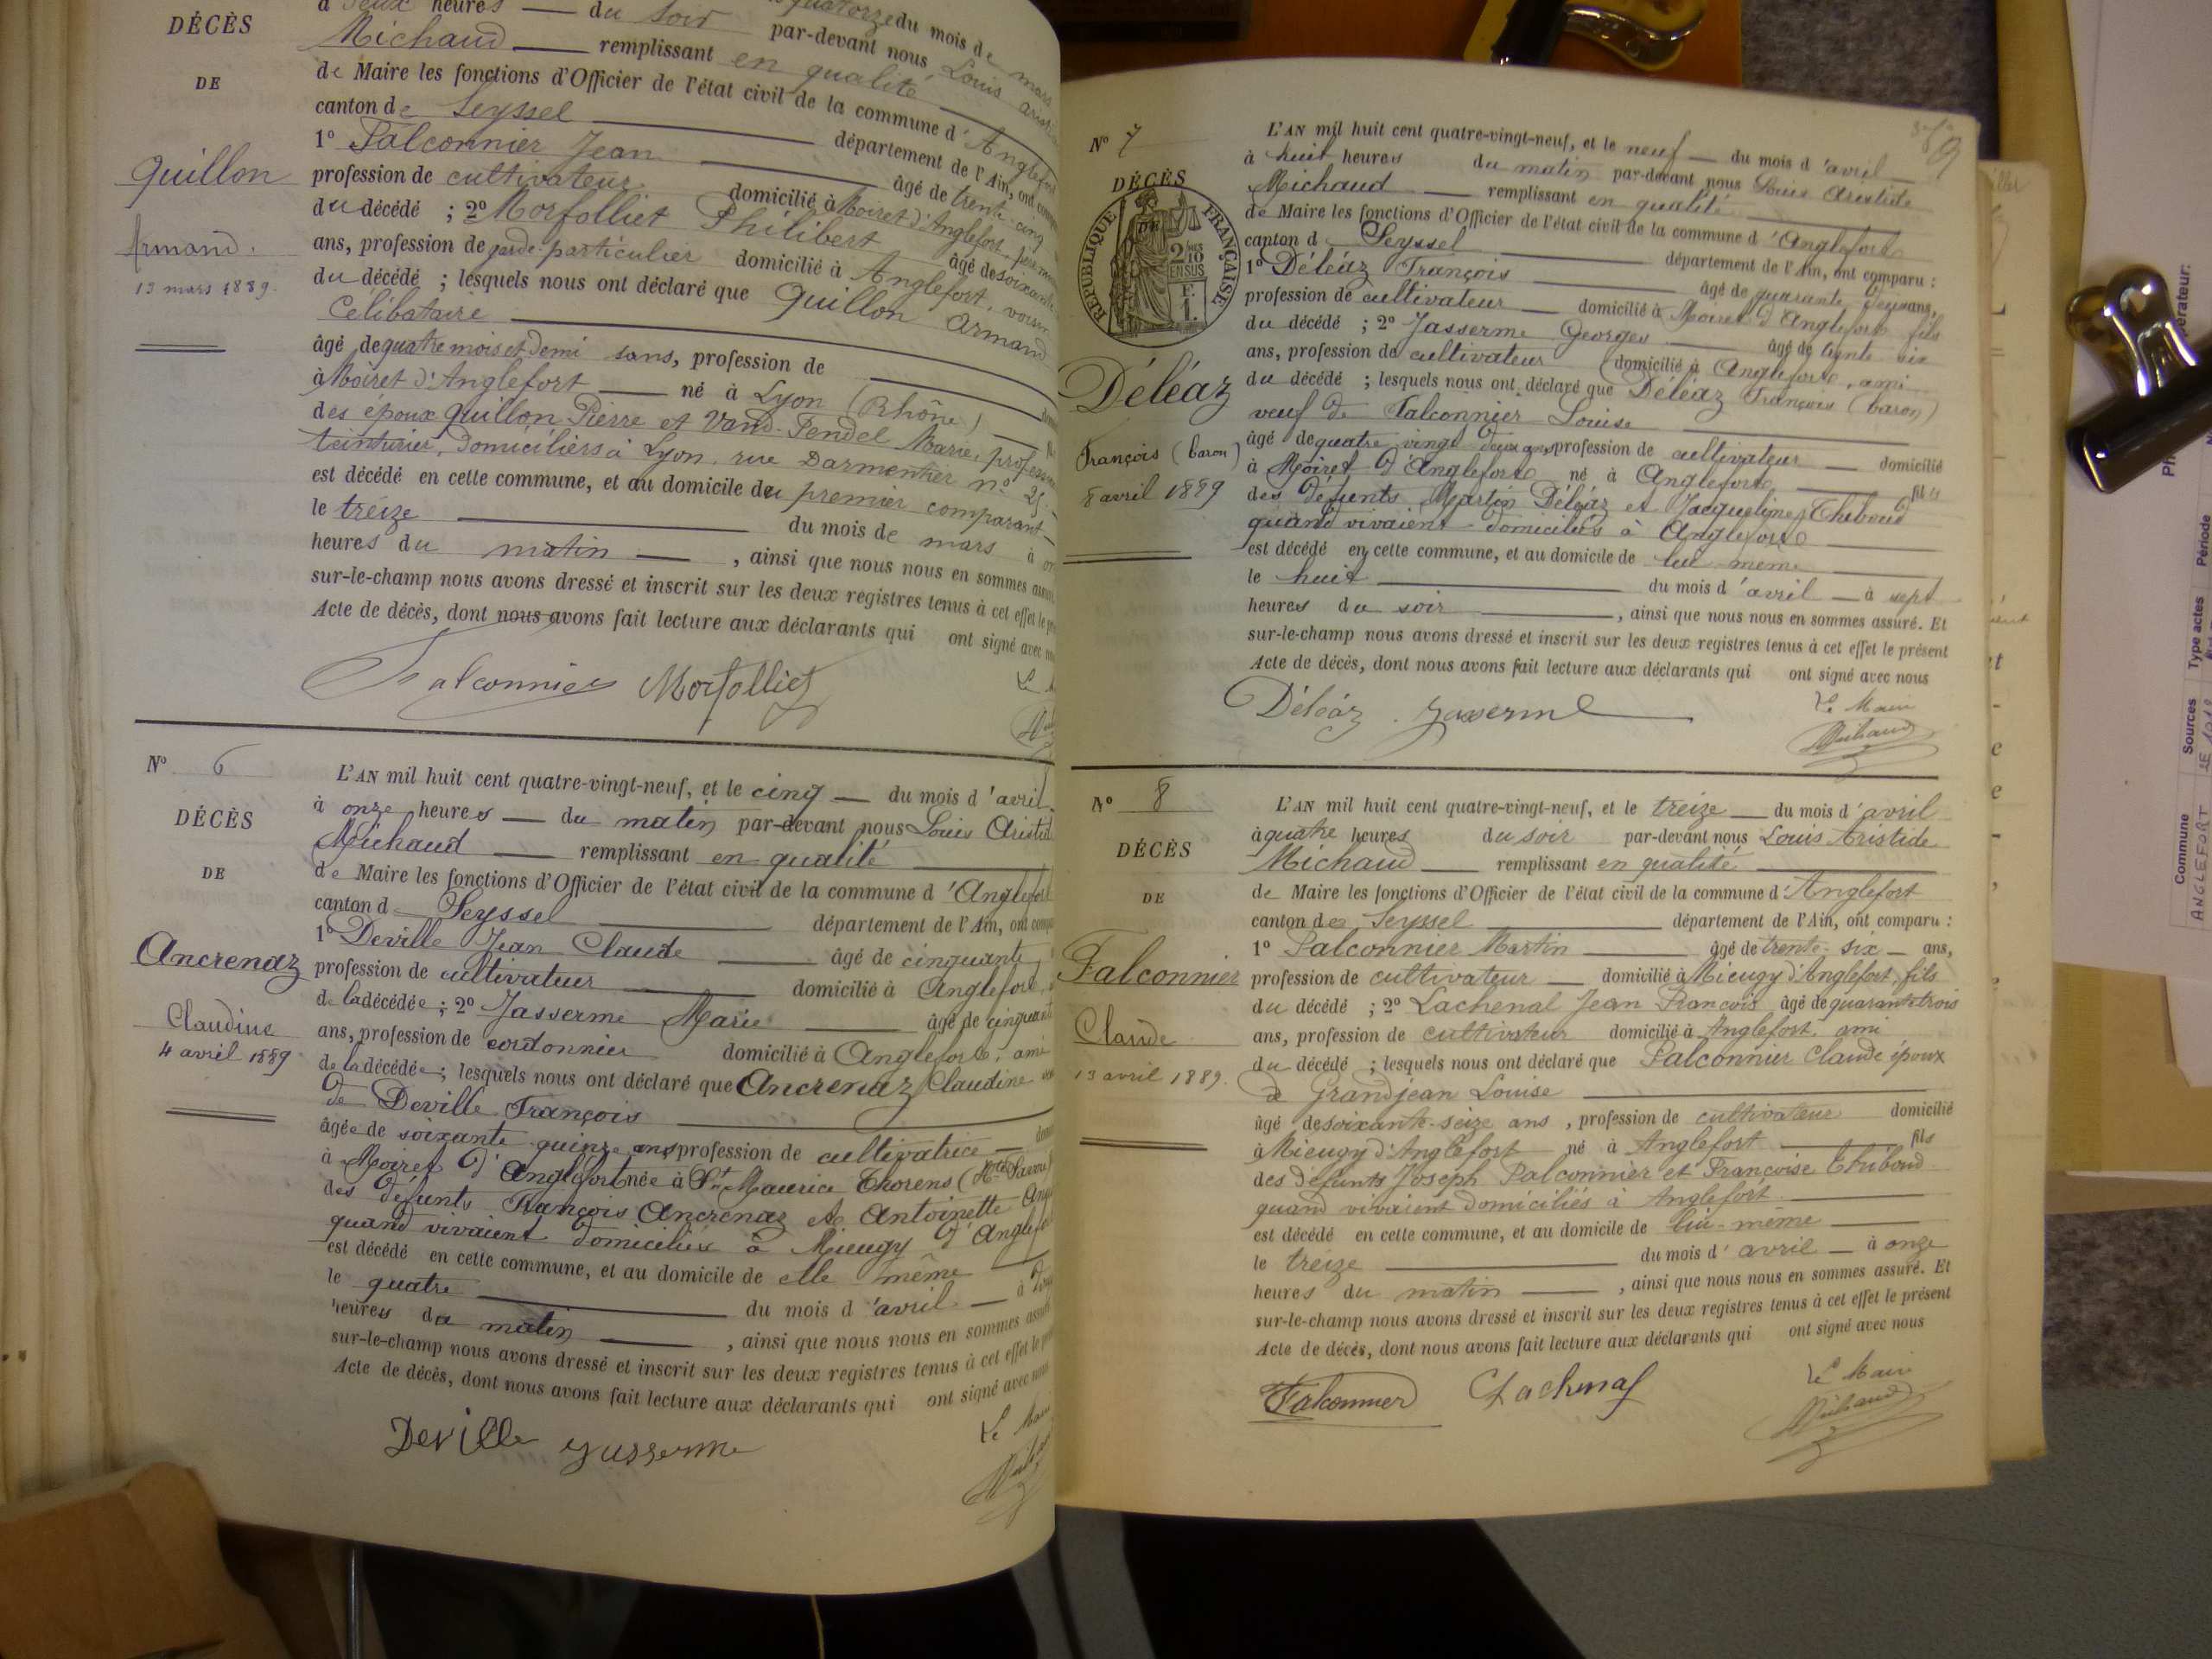 DÉCÈS
DE
Quillon
Armand.
13 mars 1889.
à deux heures — du soir par-devant nous Louis
Michaud — remplissant en qualité
de Maire les fonctions d'Officier de l'état civil de la commune d'Anglefort
canton de Seyssel — département de l'Ain, ont
1º Falconnier Jean — âgé de trente-cinq
profession de cultivateur domicilié à Moiret d'Anglefort,
du décédé ; 2º Morfolliet Philibert âgé de soixante
ans, profession de garde particulier domicilié à Anglefort, voisin
du décédé ; lesquels nous ont déclaré que Quillon Armand
Célibataire
âgé de quatre mois et demi sans, profession de
à Moiret d'Anglefort — né à Lyon (Rhône)
des époux Quillon Pierre et Marie,
teinturier, domiciliers à Lyon, rue Darmentier nº 25
est décédé en cette commune, et au domicile du premier comparant
le treize — du mois de mars à
heures du matin — , ainsi que nous nous en sommes
sur-le-champ nous avons dressé et inscrit sur les deux registres tenus à cet effet le
Acte de décès, dont nous avons fait lecture aux déclarants qui ont signé avec
Falconnier Morfolliet
Nº 6
DÉCÈS
DE
Ancrenaz
Claudine
4 avril 1889
L'AN mil huit cent quatre-vingt-neuf, et le cinq — du mois d'avril
à onze heures — du matin par-devant nous Louis Aristid
Michaud — remplissant en qualité
de Maire les fonctions d'Officier de l'état civil de la commune d'Anglefort
canton de Seyssel — département de l'Ain, ont
1º Deville Jean Claude — âgé de cinquante
profession de cultivateur — domicilié à Anglefort,
de la décédée ; 2º Jasserme Marie — âgé de cinquante
ans, profession de cordonnier domicilié à Anglefort, ami
de la décédée ; lesquels nous ont déclaré que Ancrenaz Claudine
de Deville François
âgée de soixante-quinze ans profession de cultivatrice —
à Moiret d'Anglefort née à St Maurice Thorens (Hte Savoie)
des défunts François Ancrenaz et Antoinette
quand vivaient domiciliés à Mieugy d'Anglefort
est décédé en cette commune, et au domicile de elle même
le quatre — du mois d'avril — à
heures du matin — , ainsi que nous nous en sommes
sur-le-champ nous avons dressé et inscrit sur les deux registres tenus à cet effet le
Acte de décès, dont nous avons fait lecture aux déclarants qui ont signé avec nous
Deville Jusserme
Nº 7
DÉCÈS
DE
RÉPUBLIQUE FRANÇAISE
Déléaz
François (baron)
8 avril 1889
L'AN mil huit cent quatre-vingt-neuf, et le neuf — du mois d'avril —
à huit heures du matin par-devant nous Louis Aristide
Michaud — remplissant en qualité
de Maire les fonctions d'Officier de l'état civil de la commune d'Anglefort
canton de Seyssel — département de l'Ain, ont comparu :
1º Déléaz François — âgé de quarante deux ans,
profession de cultivateur — domicilié à Moiret d'Anglefort fils
du décédé ; 2º Jasserme Georges — âgé de trente six
ans, profession de cultivateur domicilié à Anglefort, ami
du décédé ; lesquels nous ont déclaré que Déléaz François (baron)
veuf de Falconnier Louise
âgé de quatre vingt deux ans profession de cultivateur — domicilié
à Moiret d'Anglefort né à Anglefort — fils
des défunts Martin Déléaz et Jacqueline Thiboud
quand vivaient domiciliés à Anglefort
est décédé en cette commune, et au domicile de lui même
le huit — du mois d'avril — à sept
heures du soir — , ainsi que nous nous en sommes assuré. Et
sur-le-champ nous avons dressé et inscrit sur les deux registres tenus à cet effet le présent
Acte de décès, dont nous avons fait lecture aux déclarants qui ont signé avec nous
Déléaz Jasserme
Le Maire
Michaud
Nº 8
DÉCÈS
DE
Falconnier
Claude
13 avril 1889.
L'AN mil huit cent quatre-vingt-neuf, et le treize — du mois d'avril
à quatre heures du soir par-devant nous Louis Aristide
Michaud — remplissant en qualité
de Maire les fonctions d'Officier de l'état civil de la commune d'Anglefort
canton de Seyssel — département de l'Ain, ont comparu :
1º Falconnier Martin — âgé de trente-six — ans,
profession de cultivateur — domicilié à Mieugy d'Anglefort, fils
du décédé ; 2º Lachenal Jean François âgé de quarante trois
ans, profession de cultivateur domicilié à Anglefort, ami
du décédé ; lesquels nous ont déclaré que Falconnier Claude époux
de Grandjean Louise
âgé de soixante-seize ans , profession de cultivateur domicilié
à Mieugy d'Anglefort né à Anglefort — fils
des défunts Joseph Falconnier et Françoise Thiboud
quand vivaient domiciliés à Anglefort
est décédé en cette commune, et au domicile de lui-même
le treize — du mois d'avril — à onze
heures du matin — , ainsi que nous nous en sommes assuré. Et
sur-le-champ nous avons dressé et inscrit sur les deux registres tenus à cet effet le présent
Acte de décès, dont nous avons fait lecture aux déclarants qui ont signé avec nous
Falconnier Lachenal
Le Maire
Michaud
Commune Sources Type actes Période
ANGLEFORT